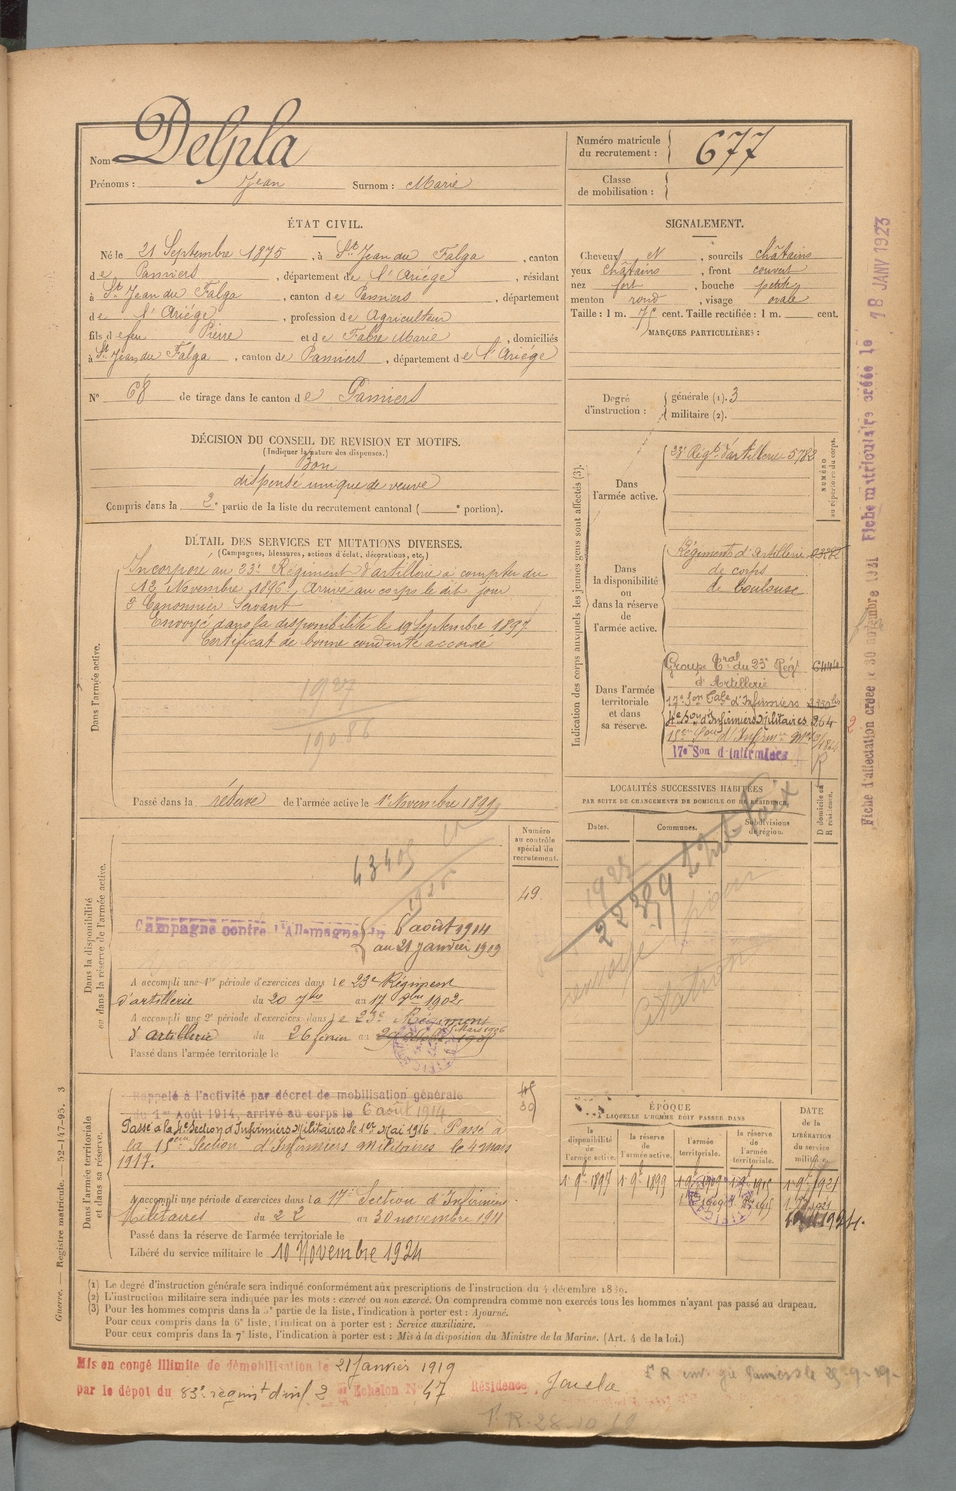 Nom : Delpla
Prénoms : Jean Surnom : Marie
Numéro matricule du recrutement : 677
Classe de mobilisation :
ÉTAT CIVIL.
Né le 21 Septembre 1875, à St Jean du Falga, canton
de Pamiers, département de l'Ariège, résidant
à St Jean du Falga, canton de Pamiers, département
de l'Ariège, profession de Agriculteur
fils de feu Pierre et de Fabre Marie, domiciliés
à St Jean du Falga, canton de Pamiers, département de l'Ariège
N° 68 de tirage dans le canton de Pamiers
SIGNALEMENT.
Cheveux N, sourcils châtains
yeux châtains, front couvert
nez fort, bouche petite
menton rond, visage ovale
Taille : 1 m. cent. Taille rectifiée : 1 m. cent.
MARQUES PARTICULIÈRES :
Degré d'instruction : générale (1). 3
militaire (2).
DÉCISION DU CONSEIL DE REVISION ET MOTIFS.
(Indiquer la nature des dispenses.)
Bon
dispensé unique de veuve
Compris dans la 2e partie de la liste du recrutement cantonal ( e portion).
DÉTAIL DES SERVICES ET MUTATIONS DIVERSES.
(Campagnes, blessures, actions d'éclat, décorations, etc.)
Dans l'armée active.
Incorporé au 23e Régiment d'artillerie à compter du
12 Novembre 1896. Arrivé au corps le dit jour
2e Canonnier Servant
Envoyé dans la disponibilité le 19 Septembre 1897
Certificat de bonne conduite accordé
1927
19086
Passé dans la réserve de l'armée active le 1er Novembre 1899
Indication des corps auxquels les jeunes gens sont affectés (3).
NUMÉRO au répertoire du corps.
Dans l'armée active.
23e Régt d'artillerie 5782
Dans la disponibilité ou dans la réserve de l'armée active.
Régiment d'Artillerie
de corps
de Toulouse
Dans l'armée territoriale et dans sa réserve.
Groupe Tral du 23e Régt
d'Artillerie
17e Son d'infirmiers
Fiche d'affectation créée le 30 novembre 1921 Fiche matriculaire créée le 18 JANV 1923
LOCALITÉS SUCCESSIVES HABITÉES
PAR SUITE DE CHANGEMENTS DE DOMICILE OU DE RÉSIDENCE.
Dates. Communes. Subdivisions de région. D domicile ou R résidence.
Dans la disponibilité ou dans la réserve de l'armée active.
Numéro au contrôle spécial du recrutement.
49
43405
22389
Campagne contre l'Allemagne du 6 août 1914
au 21 janvier 1919
A accompli une 1re période d'exercices dans le 23e Régiment
d'artillerie du 20 7bre au 17 8bre 1902
A accompli une 2e période d'exercices dans le 23e Régiment
d'artillerie du 26 février au
Passé dans l'armée territoriale le
Dans l'armée territoriale et dans sa réserve.
Rappelé à l'activité par décret de mobilisation générale
du 1er Août 1914, arrivé au corps le 6 août 1914
Passé à la 4e Section d'Infirmiers Militaires le 1er Mai 1916. Passé à
la 15eme Section d'Infirmiers Militaires le 4 mars
1917.
A accompli une période d'exercices dans la 17e Section d'Infirmiers
Militaires du 22 au 30 novembre 1911
Passé dans la réserve de l'armée territoriale le
Libéré du service militaire le 10 Novembre 1924
ÉPOQUE
À LAQUELLE L'HOMME DOIT PASSER DANS
la disponibilité de l'armée active.
la réserve de l'armée active.
l'armée territoriale.
la réserve de l'armée territoriale.
DATE DE LA LIBÉRATION du service militaire.
1er 9bre 1897 1er 9bre 1899
(1) Le degré d'instruction générale sera indiqué conformément aux prescriptions de l'instruction du 4 décembre 1889.
(2) L'instruction militaire sera indiquée par les mots : exercé ou non exercé. On comprendra comme non exercés tous les hommes n'ayant pas passé au drapeau.
(3) Pour les hommes compris dans la 5e partie de la liste, l'indication à porter est : Ajourné.
Pour ceux compris dans la 6e liste, l'indication à porter est : Service auxiliaire.
Pour ceux compris dans la 7e liste, l'indication à porter est : Mis à la disposition du Ministre de la Marine. (Art. 4 de la loi.)
Guerre. — Registre matricule. — 52-147-95. 3
Mis en congé illimité de démobilisation le 21 Janvier 1919
par le dépôt du 83e regimt d'inf 2e Echelon N° 47 Résidence
P.R. 28.10.19